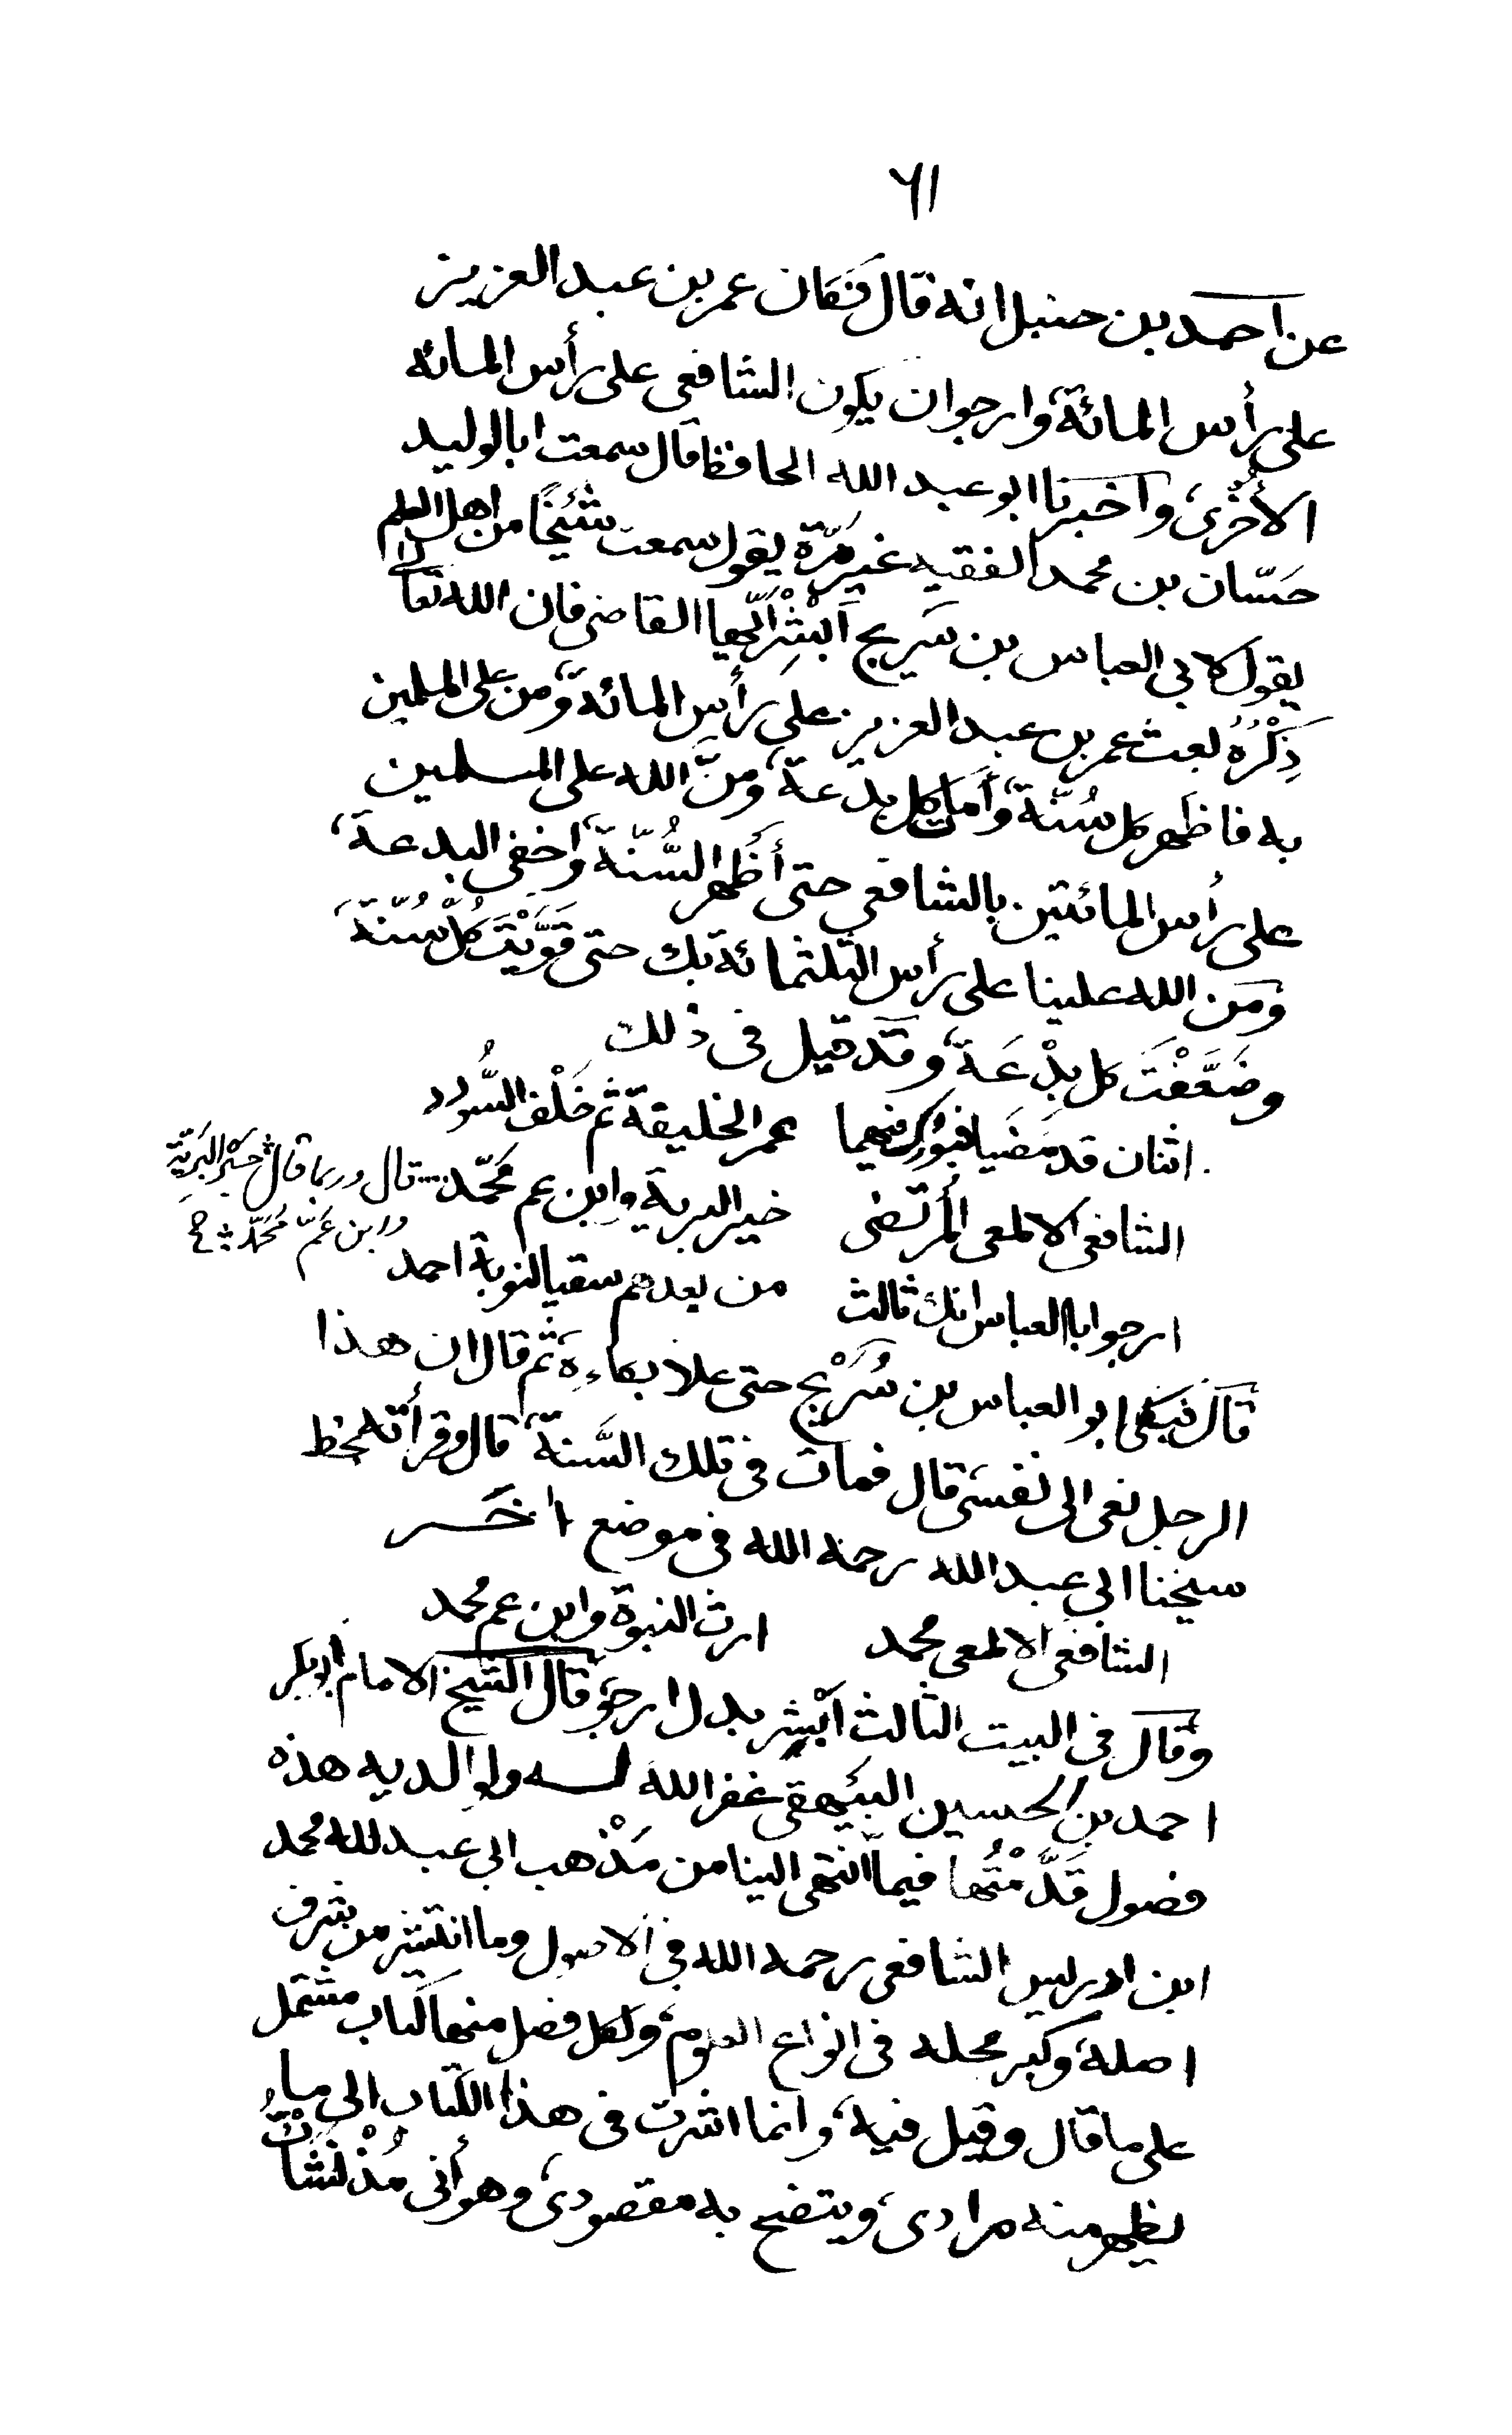 ٦١
عن احمد بن حنبل انه قال فكان عمر بن عبد العزيز
على رأس المائة، وارجوا ن يكون الشافعى على رأس المائه
الأخرى، واخبرنا ابو عبد الله الحافظ قال سمعت ابا الوليد
حَسّان بن محمد الفقيه غير مَرّة يقول سمعت شَيْخًا من اهل العلم
يقول لابي العباس بن سَريج اَبْشِرْ اَيّها القاضى فان الله تعالى
ذِكْرُهُ بعث عمر بن عبد العزيز على رأس المائة، ومن على المسلمين
به فاظهر كل سُنّة، وأمات كل بدعة، ومنَّ الله على المسلمين
على رأس المائتين بالشافعي حتى أظهر السُّنّة، واخفى البدعة،
ومن الله علينا على رأس الثلثمائة بك حتى قَوَّيْتَ كُلّ سُنّة،
وضَعَّفْتَ كل بِدْعَة، وقد قيل فى ذلك
اثنان قد مَضَيا فبُورِك فيهما عمر الخليفة ثم خَلْف السُّودد
الشافعى الالمعى المُرتَضى خير البرية وابن عم مُحَمّد
قال وربما قال خَيْر البَرِيّةِ
وابن عَمّ مُحَمّد
ارجوا با العباس انك ثالث من بعدهم سقيا لنوبة احمد
قال فبكى ابو العباس بن سُرَيْج حتى علا بكاءه، ثم قال ان هذا
الرجل نعى الى نفسى، قال فمات فى تلك السَّنة، قال وقرأته بخط
شيخنا ابي عبد الله رحمه الله فى موضع اٰخَر
الشافعى الالمعى محمد ارث النبوة وابن عم محمد
وقال فى البيت الثالث اَبْشِر بدل ارجو، قال الشيخ الامام ابو بكر
احمد بن الحسين البَيْهقى غفر الله له ولوالديه هذه
فصول قَدَّمْتُها فيما انتهى الينا من مَذْهب ابي عبد الله محمد
ابن ادريس الشافعى رحمه الله فى الاصول وما انتشر من شرف
اصله، وكبر محله فى انواع العلوم، ولكل فصل منها كتاب مشتمل
على ما قال وقيل فيه، وانما اشرت فى هذا الكتاب الى ما
يظهر منه مرادى، ويتضح به مقصودى، وهو أنى مُذْ نَشَأْتُ